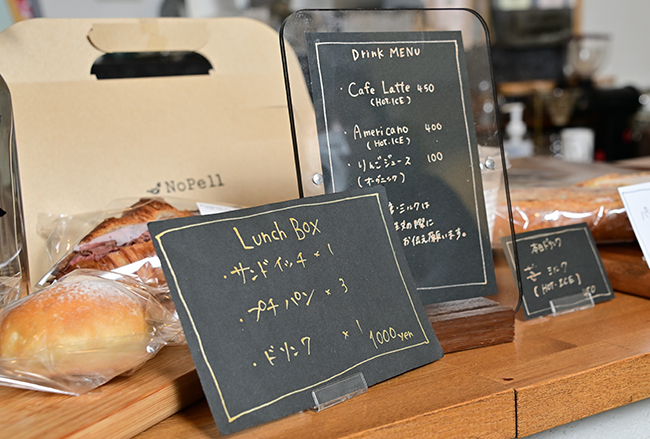 NoPell
Drink MENU
・Cafe Latte 450
(HOT・ICE)
・Americano 400
(HOT・ICE)
・りんごジュース 100
(オーガニック)
・ミルクは
お伝え願います。
Lunch Box
・サンドイッチ × 1
・プチパン × 3
・ドリンク × 1
1000yen
ミルク
(HOT・ICE)